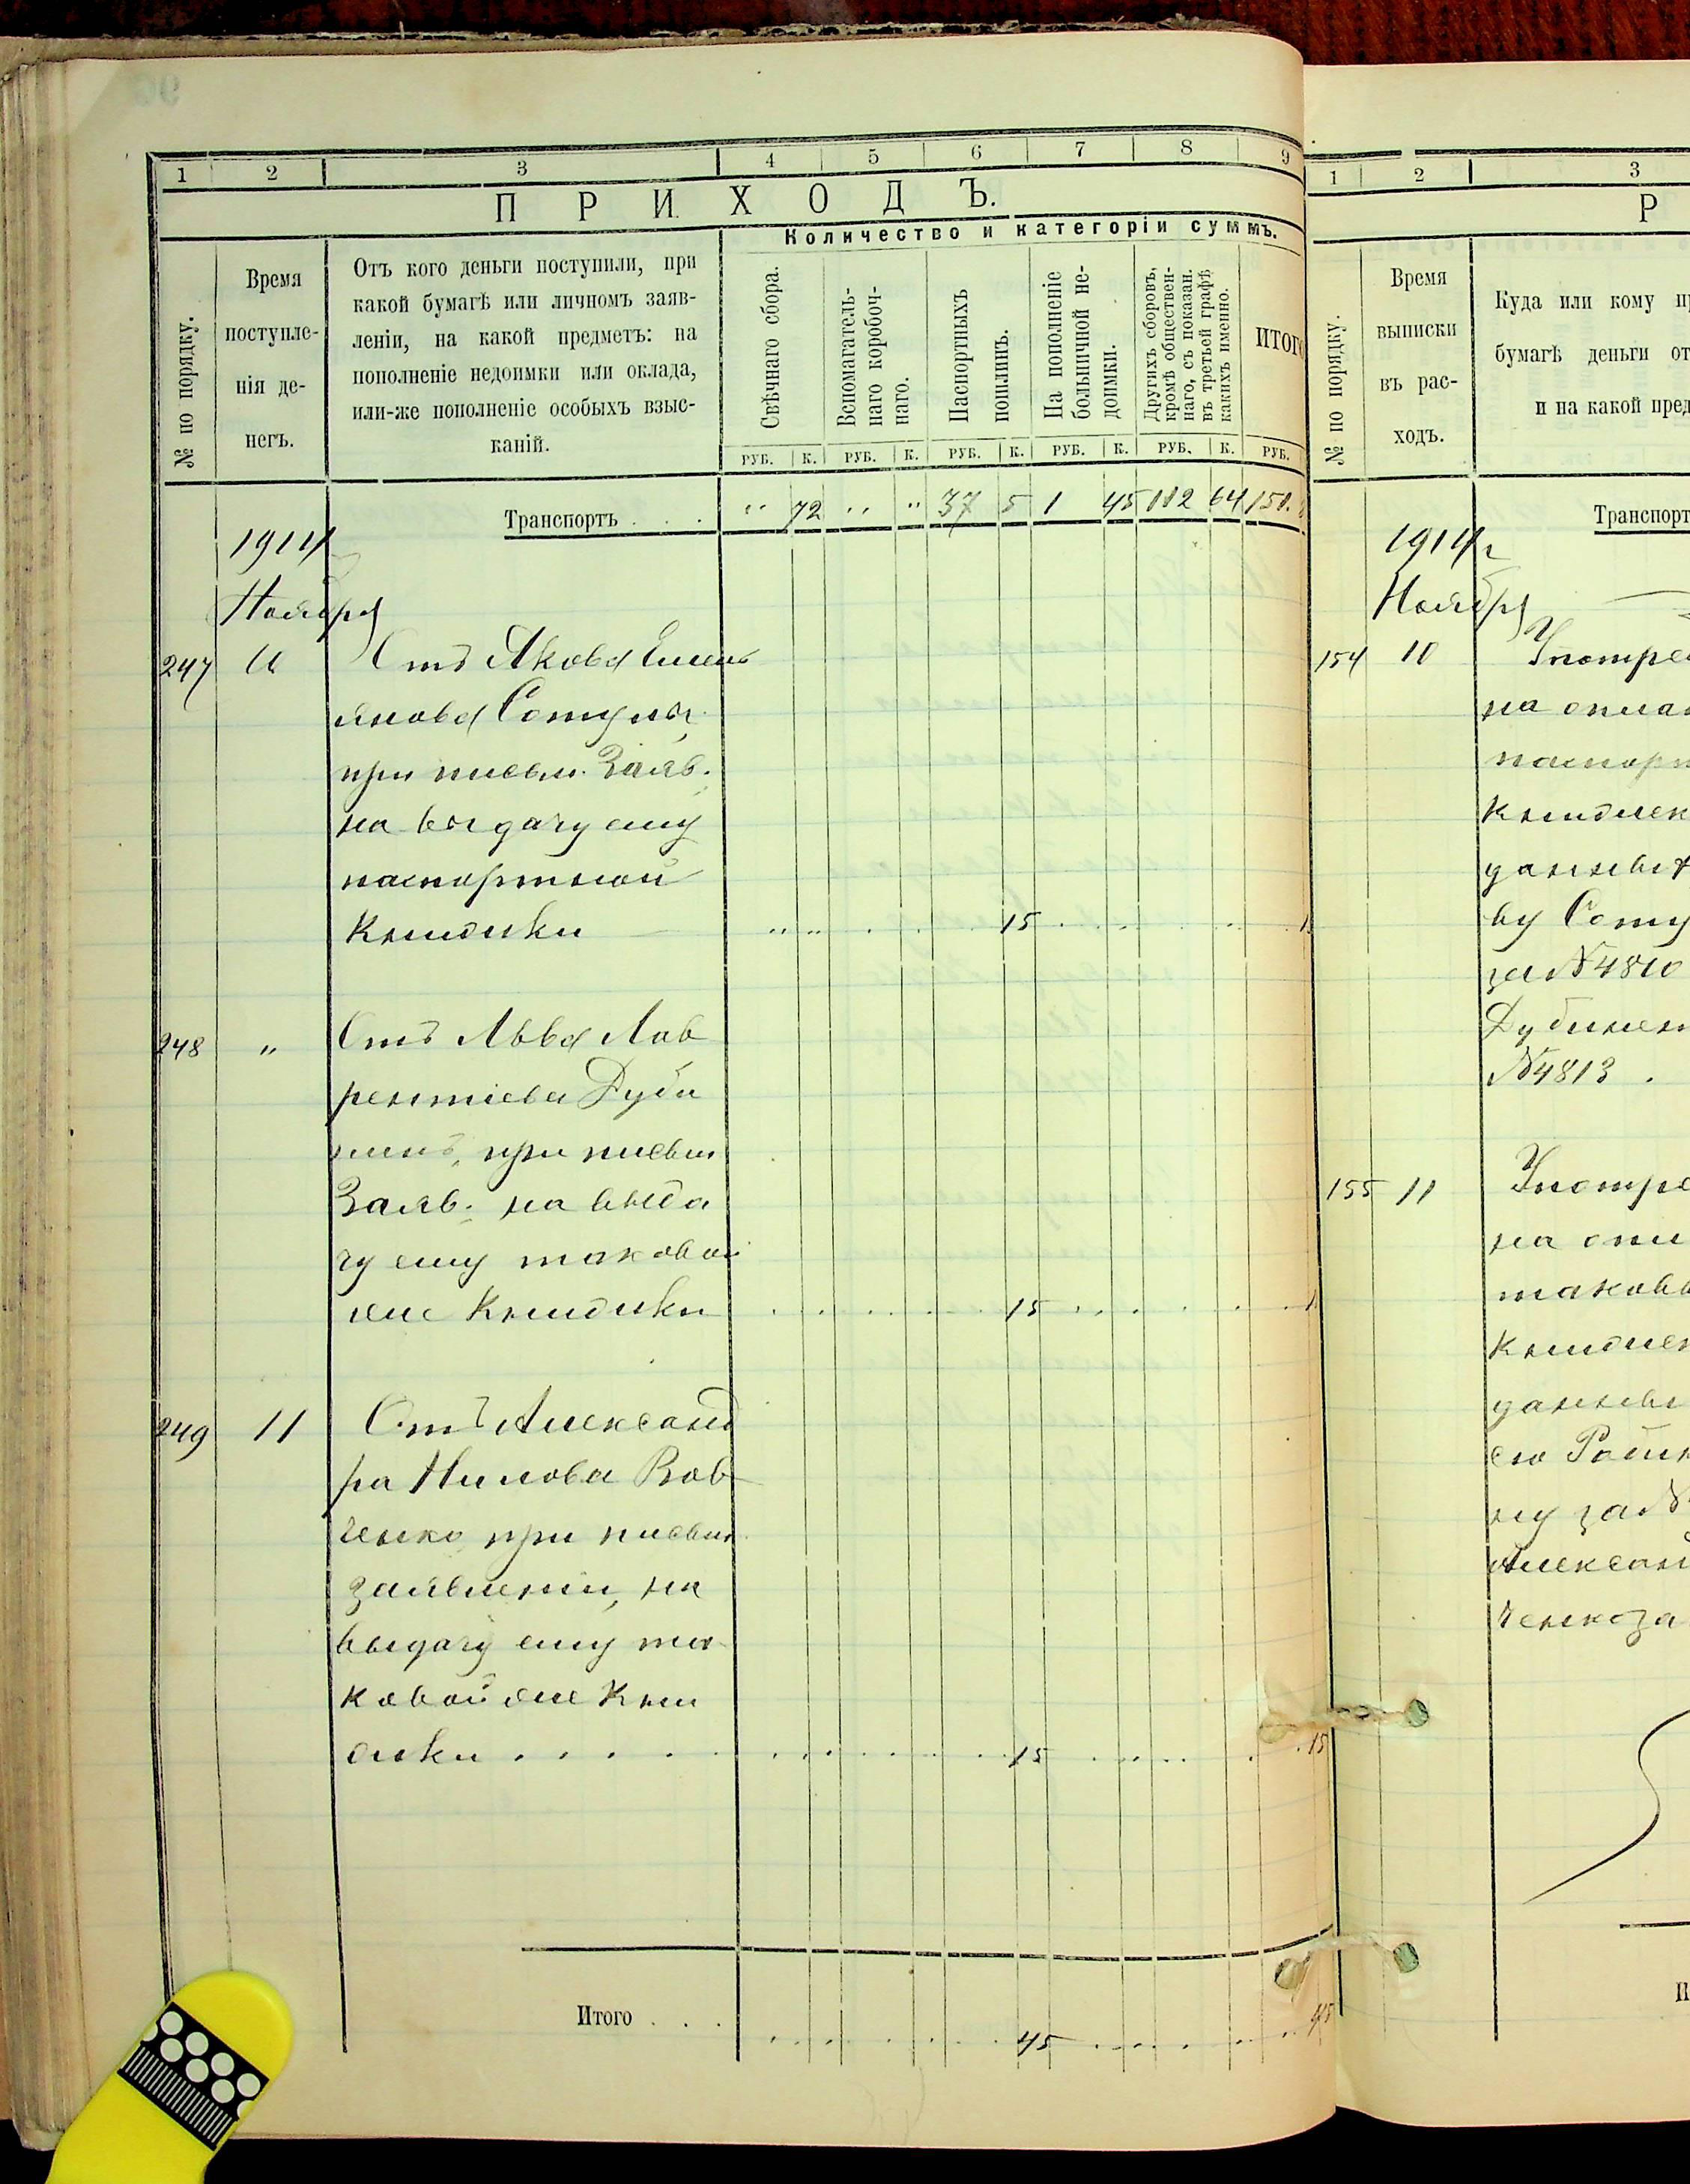 1 2 3 4 5 6 7 8 9
ПРИХОДЪ.
№ по порядку.
Время
поступле-
нія де-
негъ.
Отъ кого деньги поступили, при
какой бумагѣ или личномъ заяв-
леніи, на какой предметъ: на
пополненіе недоимки или оклада,
или-же пополненіе особыхъ взыс-
каній.
Количество и категоріи суммъ.
Свѣчнаго сбора.
Вспомагатель-
наго коробоч-
наго.
Паспортныхъ
пошлинъ.
На пополненіе
больничной не-
доимки.
Другихъ сборовъ,
кромѣ обществен-
наго, съ показан.
въ третьей графѣ,
какихъ именно.
ИТОГО
РУБ. К. РУБ. К. РУБ. К. РУБ. К. РУБ. К. РУБ.
Транспортъ . . . " 72 " " 37 5 1 45 112 64
1914
Ноября
247 Отъ Якова Емель
янова Сотулы,
при письм. Заяв.
на выдачу ему
паспортной
Книжки 15
248 " Отъ Льва Лав
рентіева Дуби
при письм
Заяв. на выда
чу ему таковой
же Книжки 15
249 11 Отъ Александ
ра Нилова Вов
ченко при письм
заявленіи, на
выдачу ему та
ковой же Кни
жки . . . . 15 15
Итого . . . 45 45
1 2 3
Р
№ по порядку.
Время
выписки
въ рас-
ходъ.
Куда или кому пр
бумагѣ деньги от
и на какой пред
Транспорт
1914 г
Ноября
154 10 Употре
на оплат
паспорт
Книжек
данных
ву Соту
за № 4810
Дубинен
№ 4813 .
155 11 Употре
на опл
таковы
Книжек
данны
сю
ну за №
Александ
ченко за
И